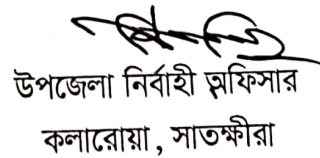 উপজেলা নির্বাহী অফিসার
কলারোয়া, সাতক্ষীরা